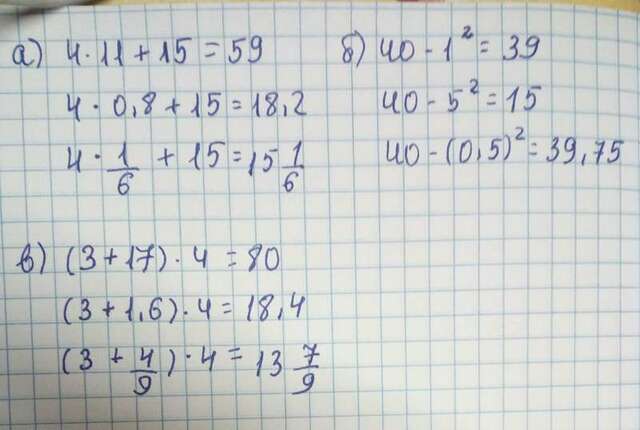 а) 4·11+15=59
4·0,8+15=18,2
4·1/6+15=15 1/6
б) 40-1²=39
40-5²=15
40-(0,5)²=39,75
в) (3+17)·4=80
(3+1,6)·4=18,4
(3+4/9)·4=13 7/9